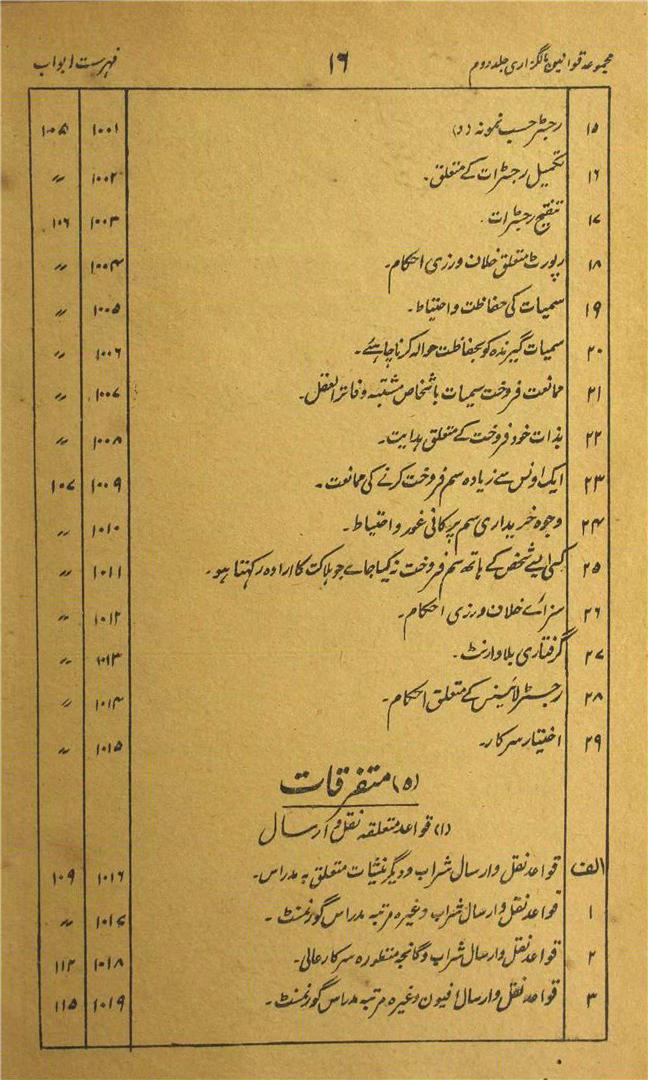 مجموعہ قوانین مالگزاری جلد دوم ۱۶ فہرست ابواب
۱۵ رجسٹر حسب نمونہ (د) ۱۰۰۱ ۱۰۵
۱۶ تکمیل رجسٹرات کے متعلق۔ ۱۰۰۲ 〃
۱۷ تنقیح رجسٹرات۔ ۱۰۰۳ ۱۰۶
۱۸ رپورٹ متعلق خلاف ورزی احکام۔ ۱۰۰۴ 〃
۱۹ سمیات کی حفاظت و احتیاط۔ ۱۰۰۵ 〃
۲۰ سمیات گیرندہ کو بحفاظت حوالہ کرنا چاہئے۔ ۱۰۰۶ 〃
۲۱ ممانعت فروخت سمیات باشخاص مشتبہ و فاتر العقل۔ ۱۰۰۷ 〃
۲۲ بذات خود فروخت کے متعلق ہدایت۔ ۱۰۰۸ 〃
۲۳ ایک اونس سے زیادہ سم فروخت کرنے کی ممانعت۔ ۱۰۰۹ ۱۰۷
۲۴ وجوہ خریداری سم پر کافی غور و احتیاط۔ ۱۰۱۰ 〃
۲۵ کسی ایسے شخص کے ہاتھ سم فروخت نہ کیا جاے جو ہلاکت کا ارادہ رکہتا ہو۔ ۱۰۱۱ 〃
۲۶ سزاے خلاف ورزی احکام۔ ۱۰۱۲ 〃
۲۷ گرفتاری بلا وارنٹ۔ ۱۰۱۳ 〃
۲۸ رجسٹر لائیسنس کے متعلق احکام۔ ۱۰۱۴ 〃
۲۹ اختیار سرکار۔ ۱۰۱۵ 〃
(۵) متفرقات
(۱) قواعد متعلقہ نقل و ارسال
الف قواعد نقل و ارسال شراب و دیگر نشیات متعلق بہ مدراس۔ ۱۰۱۶ ۱۰۹
۱ قواعد نقل و ارسال شراب وغیرہ مرتبہ مدراس گورنمنٹ۔ ۱۰۱۷ 〃
۲ قواعد نقل و ارسال شراب و گانجہ منظورہ سرکار عالی۔ ۱۰۱۸ ۱۱۲
۳ قواعد نقل و ارسال افیون وغیرہ مرتبہ مدراس گورنمنٹ۔ ۱۰۱۹ ۱۱۵